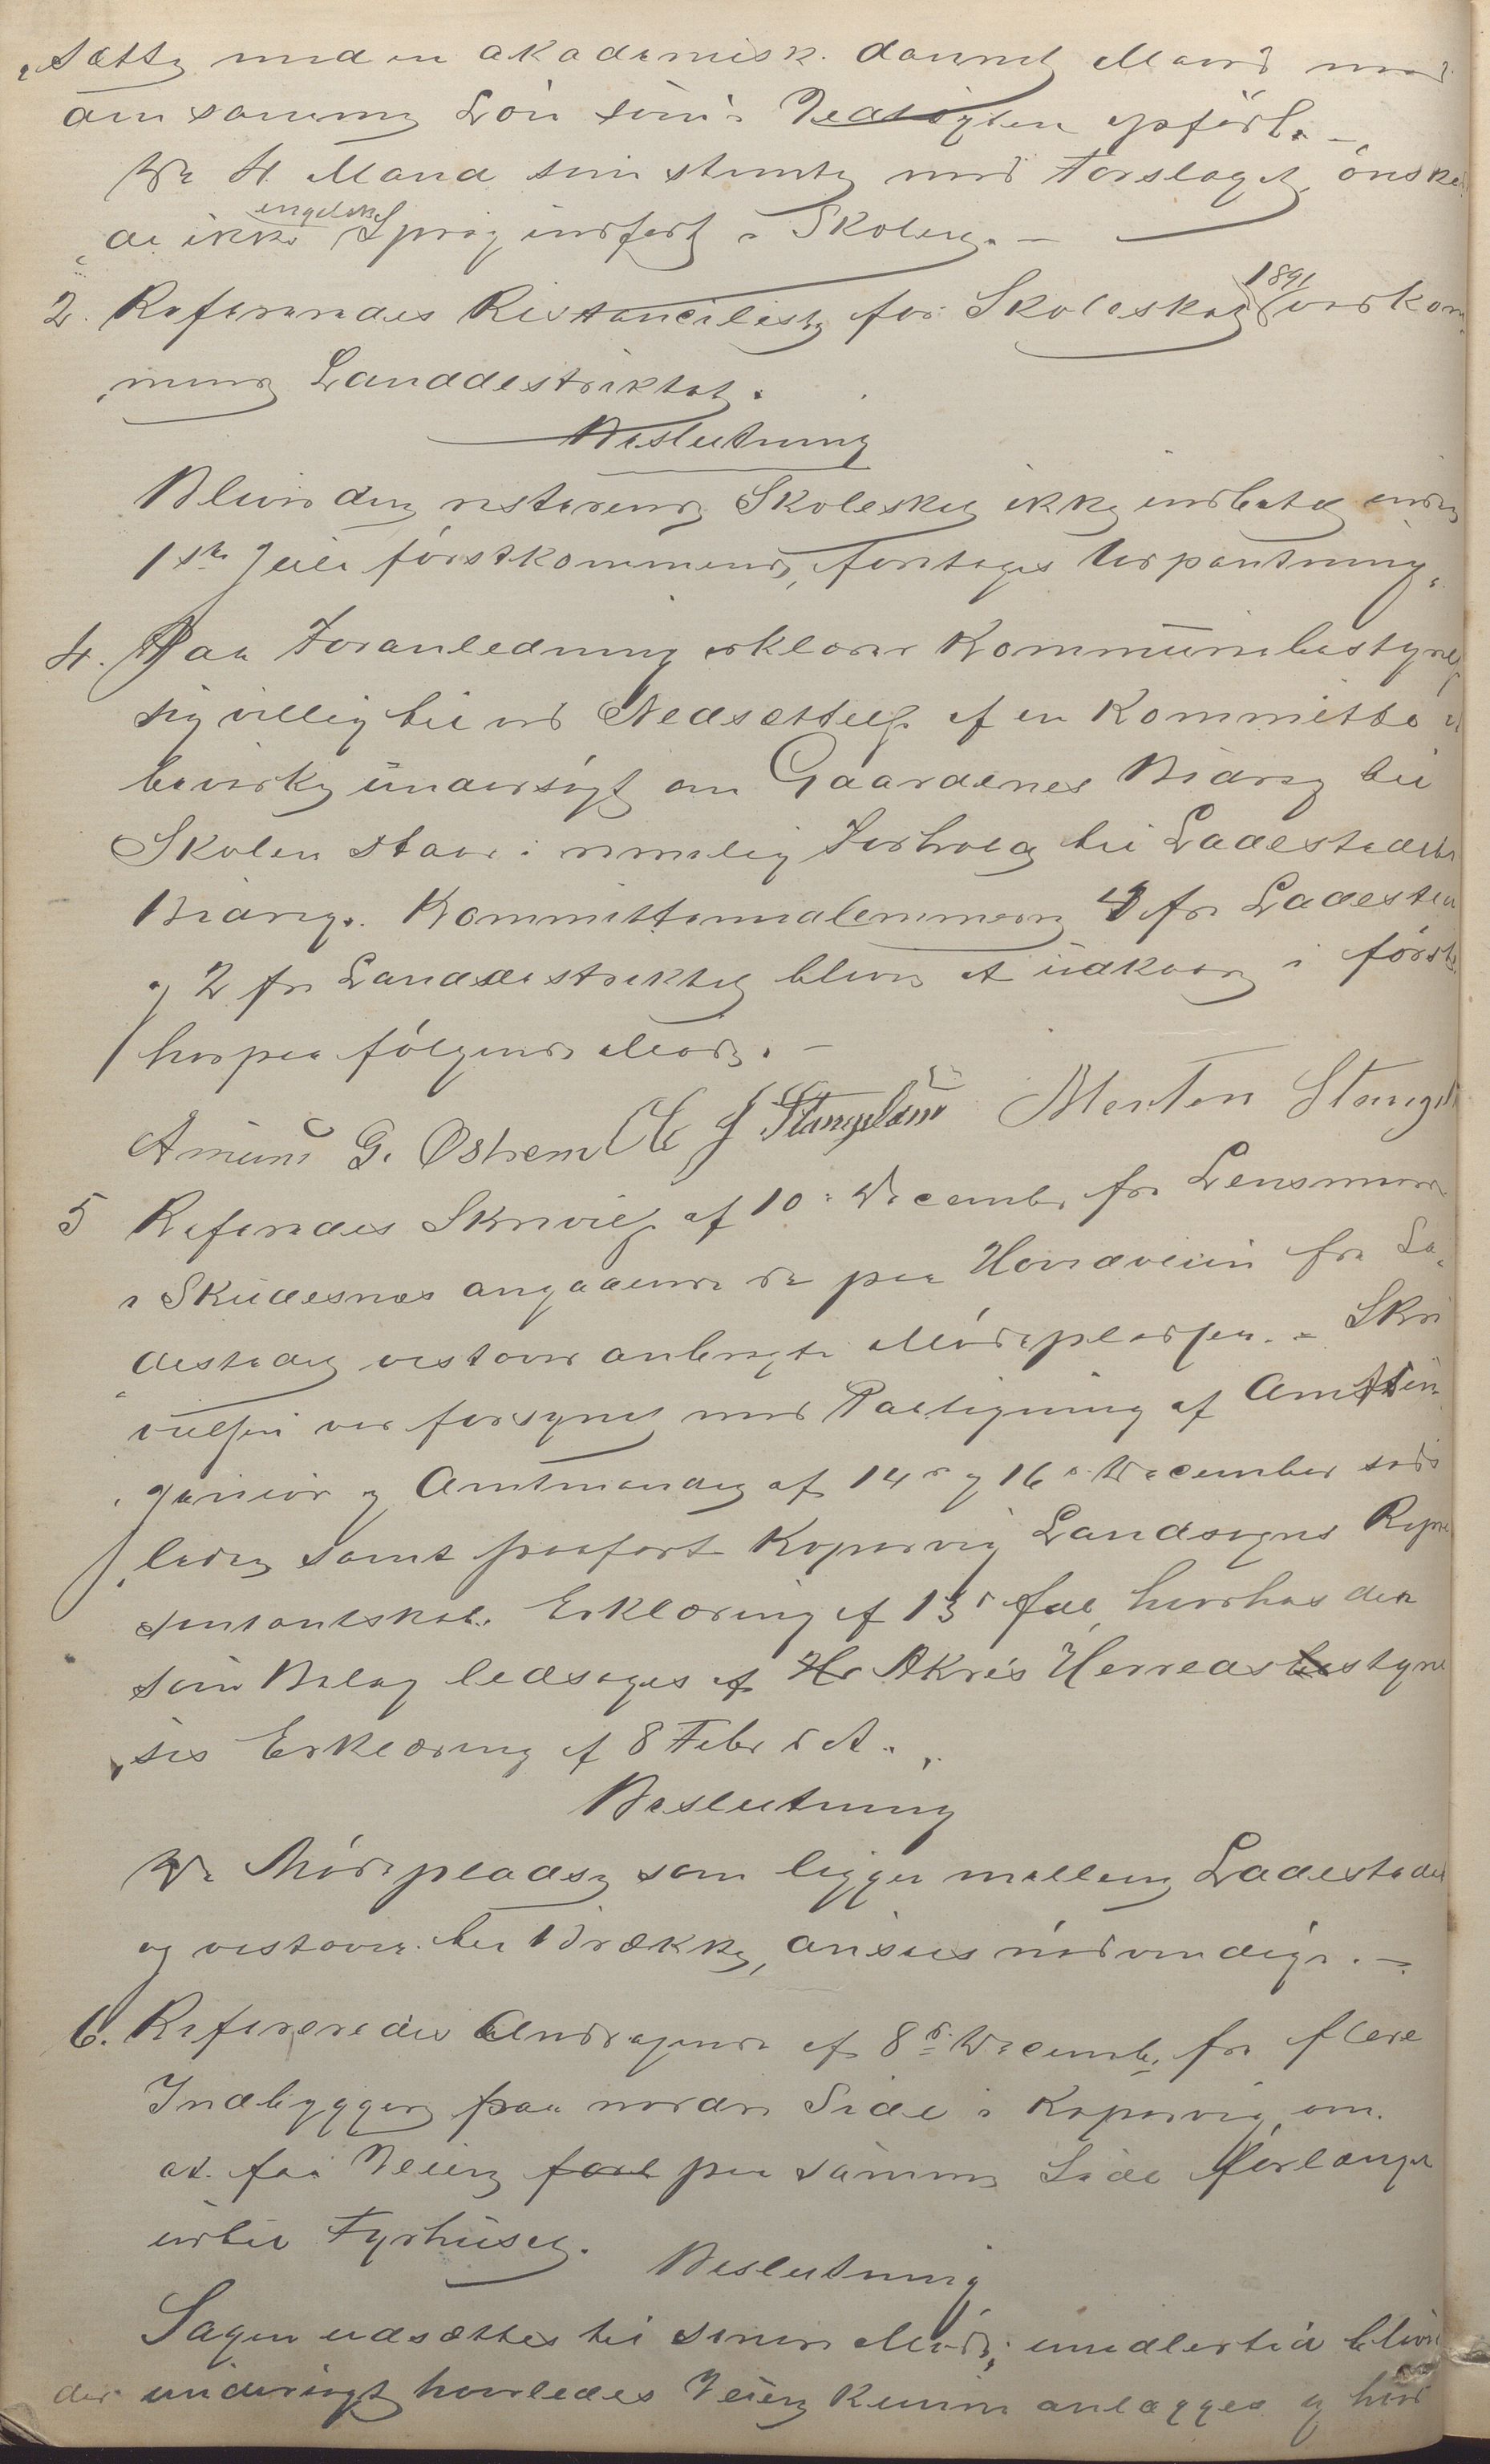 sætte med en akademisk dannet Mand med
om samme Løn som i Vedtægten opført. –
De 4 Mænd som stemte mod Forslaget, ønsked
de ikke engelske Sprog indført i Skolen. –
2. Refereredes Restanceliste for Skoleskat 1891 vedkom
mende Landdestriktet.
Beslutning
Bliver den resterende Skoleskat ikke indbetalt inden
1ste Juli førstkommende, foretages Udpantning.
4. Paa Foranledning erklærer Kommunebestyrelse
sig villig til ved Nedsættelse af en Kommitte at
bevirke undersøgt om Gaardenes Bidrag til
Skolen staar i rimelig Forhold til Ladestedets
Bidrag. Kommitteemedlemmerne 4 fra Ladested
og 2 fra Landdestriktet bliver at udkaare i første
herpaa følgende Møde. –
Amund G. Østrem O G Stangeland Morten Stangel
5 Refereredes Skrivelse af 10de December fra Lensmand
i Skudesnæs angaaende de paa Hovedveien fra La
destedet vestover anbragte Mødepladser. – Skri
velsen var forsynet med Paategning af Amtsin
geniør og Amtmanden af 14de og 16de December sidst
leden samt paaført Kopervig Landsogns Repræ
sentantskab. Erklæring af 13de hvorhos den
som Bilag ledsages af Hr Akre's Herredsbestyrel
ses Erklæring af 8 Febr d A.
Beslutning
De Mødepladse som ligger mellem Ladestedet
og vestover til Brække, ansees nødvendige. –
6. Refereredes Andragende af 8de December fra flere
Indbyggere paa nordre Side i Kopervig om
at faa Veien forl paa samme Side forlænget
ud til Fyrhuset.
Beslutning
Sagen udsættes til senere Møde; imidlertid bliver
der undersøgt hvorledes Veien kunne anlægges og hvad